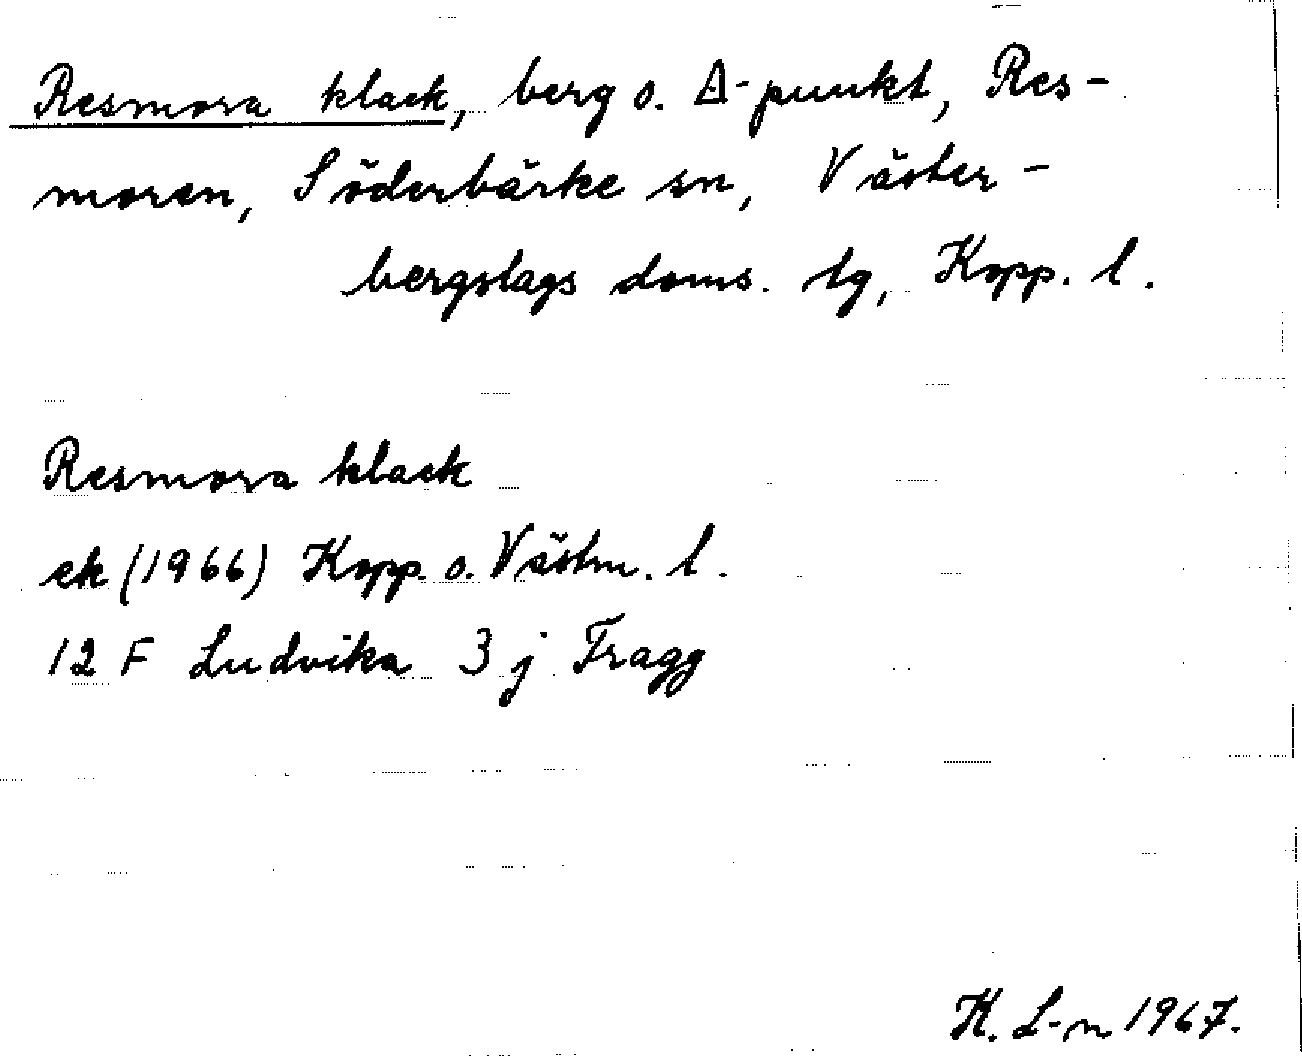 Resmora klack, berg o. Δ-punkt, Res-
moren, Söderbärke sn, Väster-
bergslags doms. tg, Kopp. l.
Resmora klack
ek (1966) Kopp. o. Västm. l.
12 F Ludvika 3 j Fragg
H. L-n 1967.